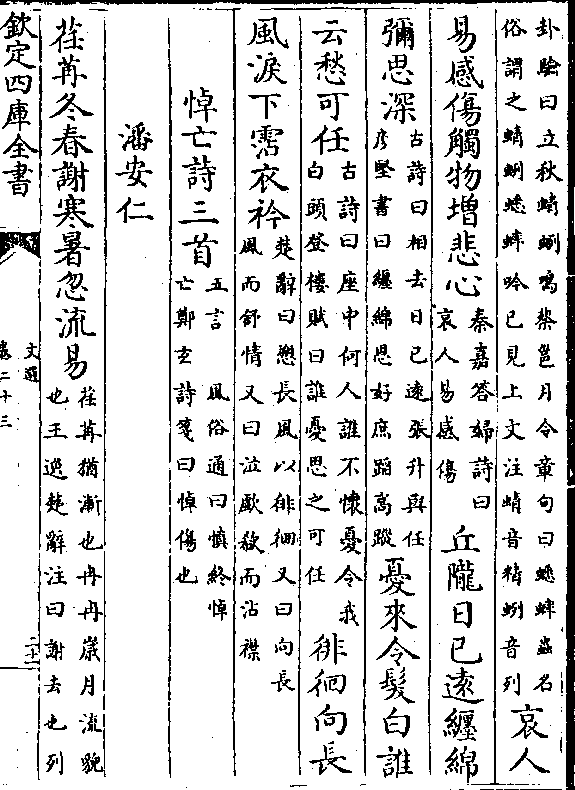 卦驗曰立秋蜻蛚鳴蔡邕月令章句曰蟋蟀蟲名
俗謂之蜻蛚蟋蟀吟已見上文注蜻音精蛚音列
哀人
易感傷觸物增悲心
秦嘉答婦詩曰
哀人易感傷
丘隴日已遠纏綿
彌思深
古詩曰相去日已遠張升與任
彥堅書曰纏綿恩好庶蹈高蹤
憂來令髮白誰
云愁可任
古詩曰座中何人誰不懷憂令我
白頭登樓賦曰誰憂思之可任
徘徊向長
風淚下霑衣衿
楚辭曰戀長風以徘徊又曰向長
風而舒情又曰泣歔欷而沾襟
悼亡詩三首
五言 風俗通曰慎終悼
亡鄭玄詩箋曰悼傷也
潘安仁
荏苒冬春謝寒暑忽流易
荏苒猶漸也冉冉歲月流貌
也王逸楚辭注曰謝去也列
欽定四庫全書
文選
卷二十三